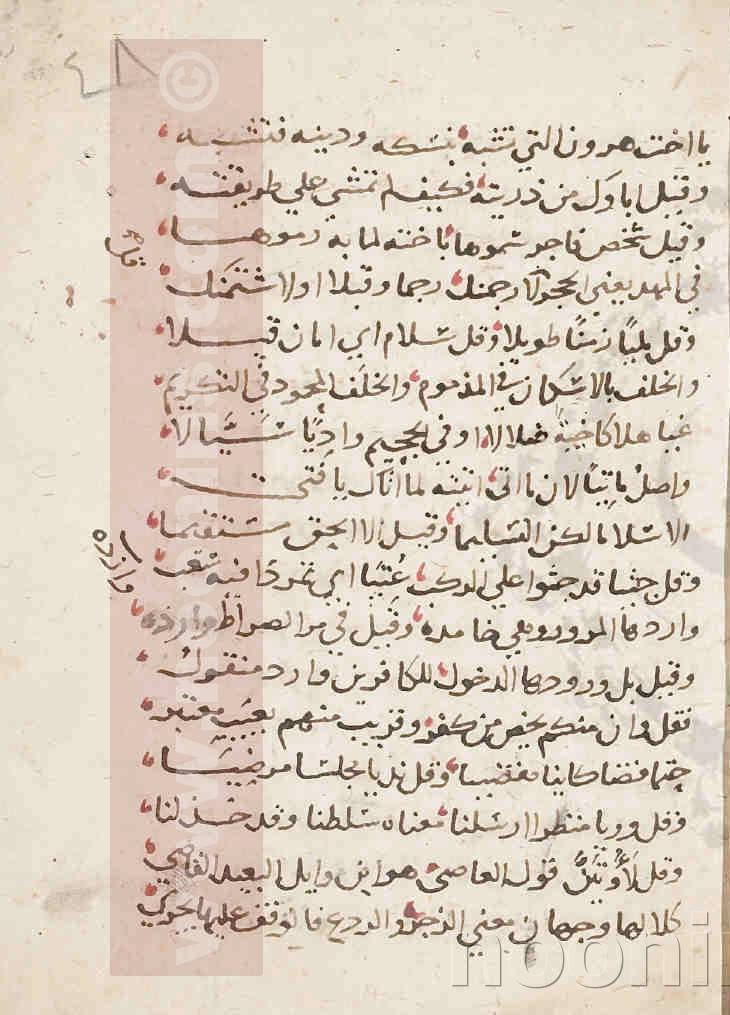 ٤٨
يا اخت هرون التي تشبه بنسكه ودينه فتشبه
وقيل اباول من ذريته فكيف لم تمشي علي طريقته
وقيل شخص فاجر سموها باخته لما به رموها
في المهد يعني الحجر لارجمنك رجما وقيلا او لا شتمنك
وقل مليا زمنا طويلا وقل سلام اي امان قيلا
والخلف بالاسكان في المذموم والخلف المحمود في التكريم
غيا هلاكا خيبة ضلالا او في الجحيم واديا سيالا
واصل ماتيا لان ما اتي اتيته لما اتاك يا فتي
الا سلاما لكن التسليما وقيل الا الحق مستقيما
وقل جثيا قد جثوا علي الركب عتيا اي تمردا فيه شغب
واردها المرور وهي خامده وقيل في مر الصراط وارده
وارده
وقيل بل ورودها الدخول للكافرين وارد منقول
فقل وان منكم يخص من كفر وقريت منهم بغيب معتبر
حتما قضا كاينا مقضيا وقل نديا مجلسا مرضيا
وقل وريا منظرا ارسلنا معناه سلطنا وقد خذلنا
وقل لأوتين قول العاصي هو ابن وايل البعيد القاصي
كلا لها وجهان معني الزجر والردع فالوقف عليها يجري
www.noonir.com ©
noonir